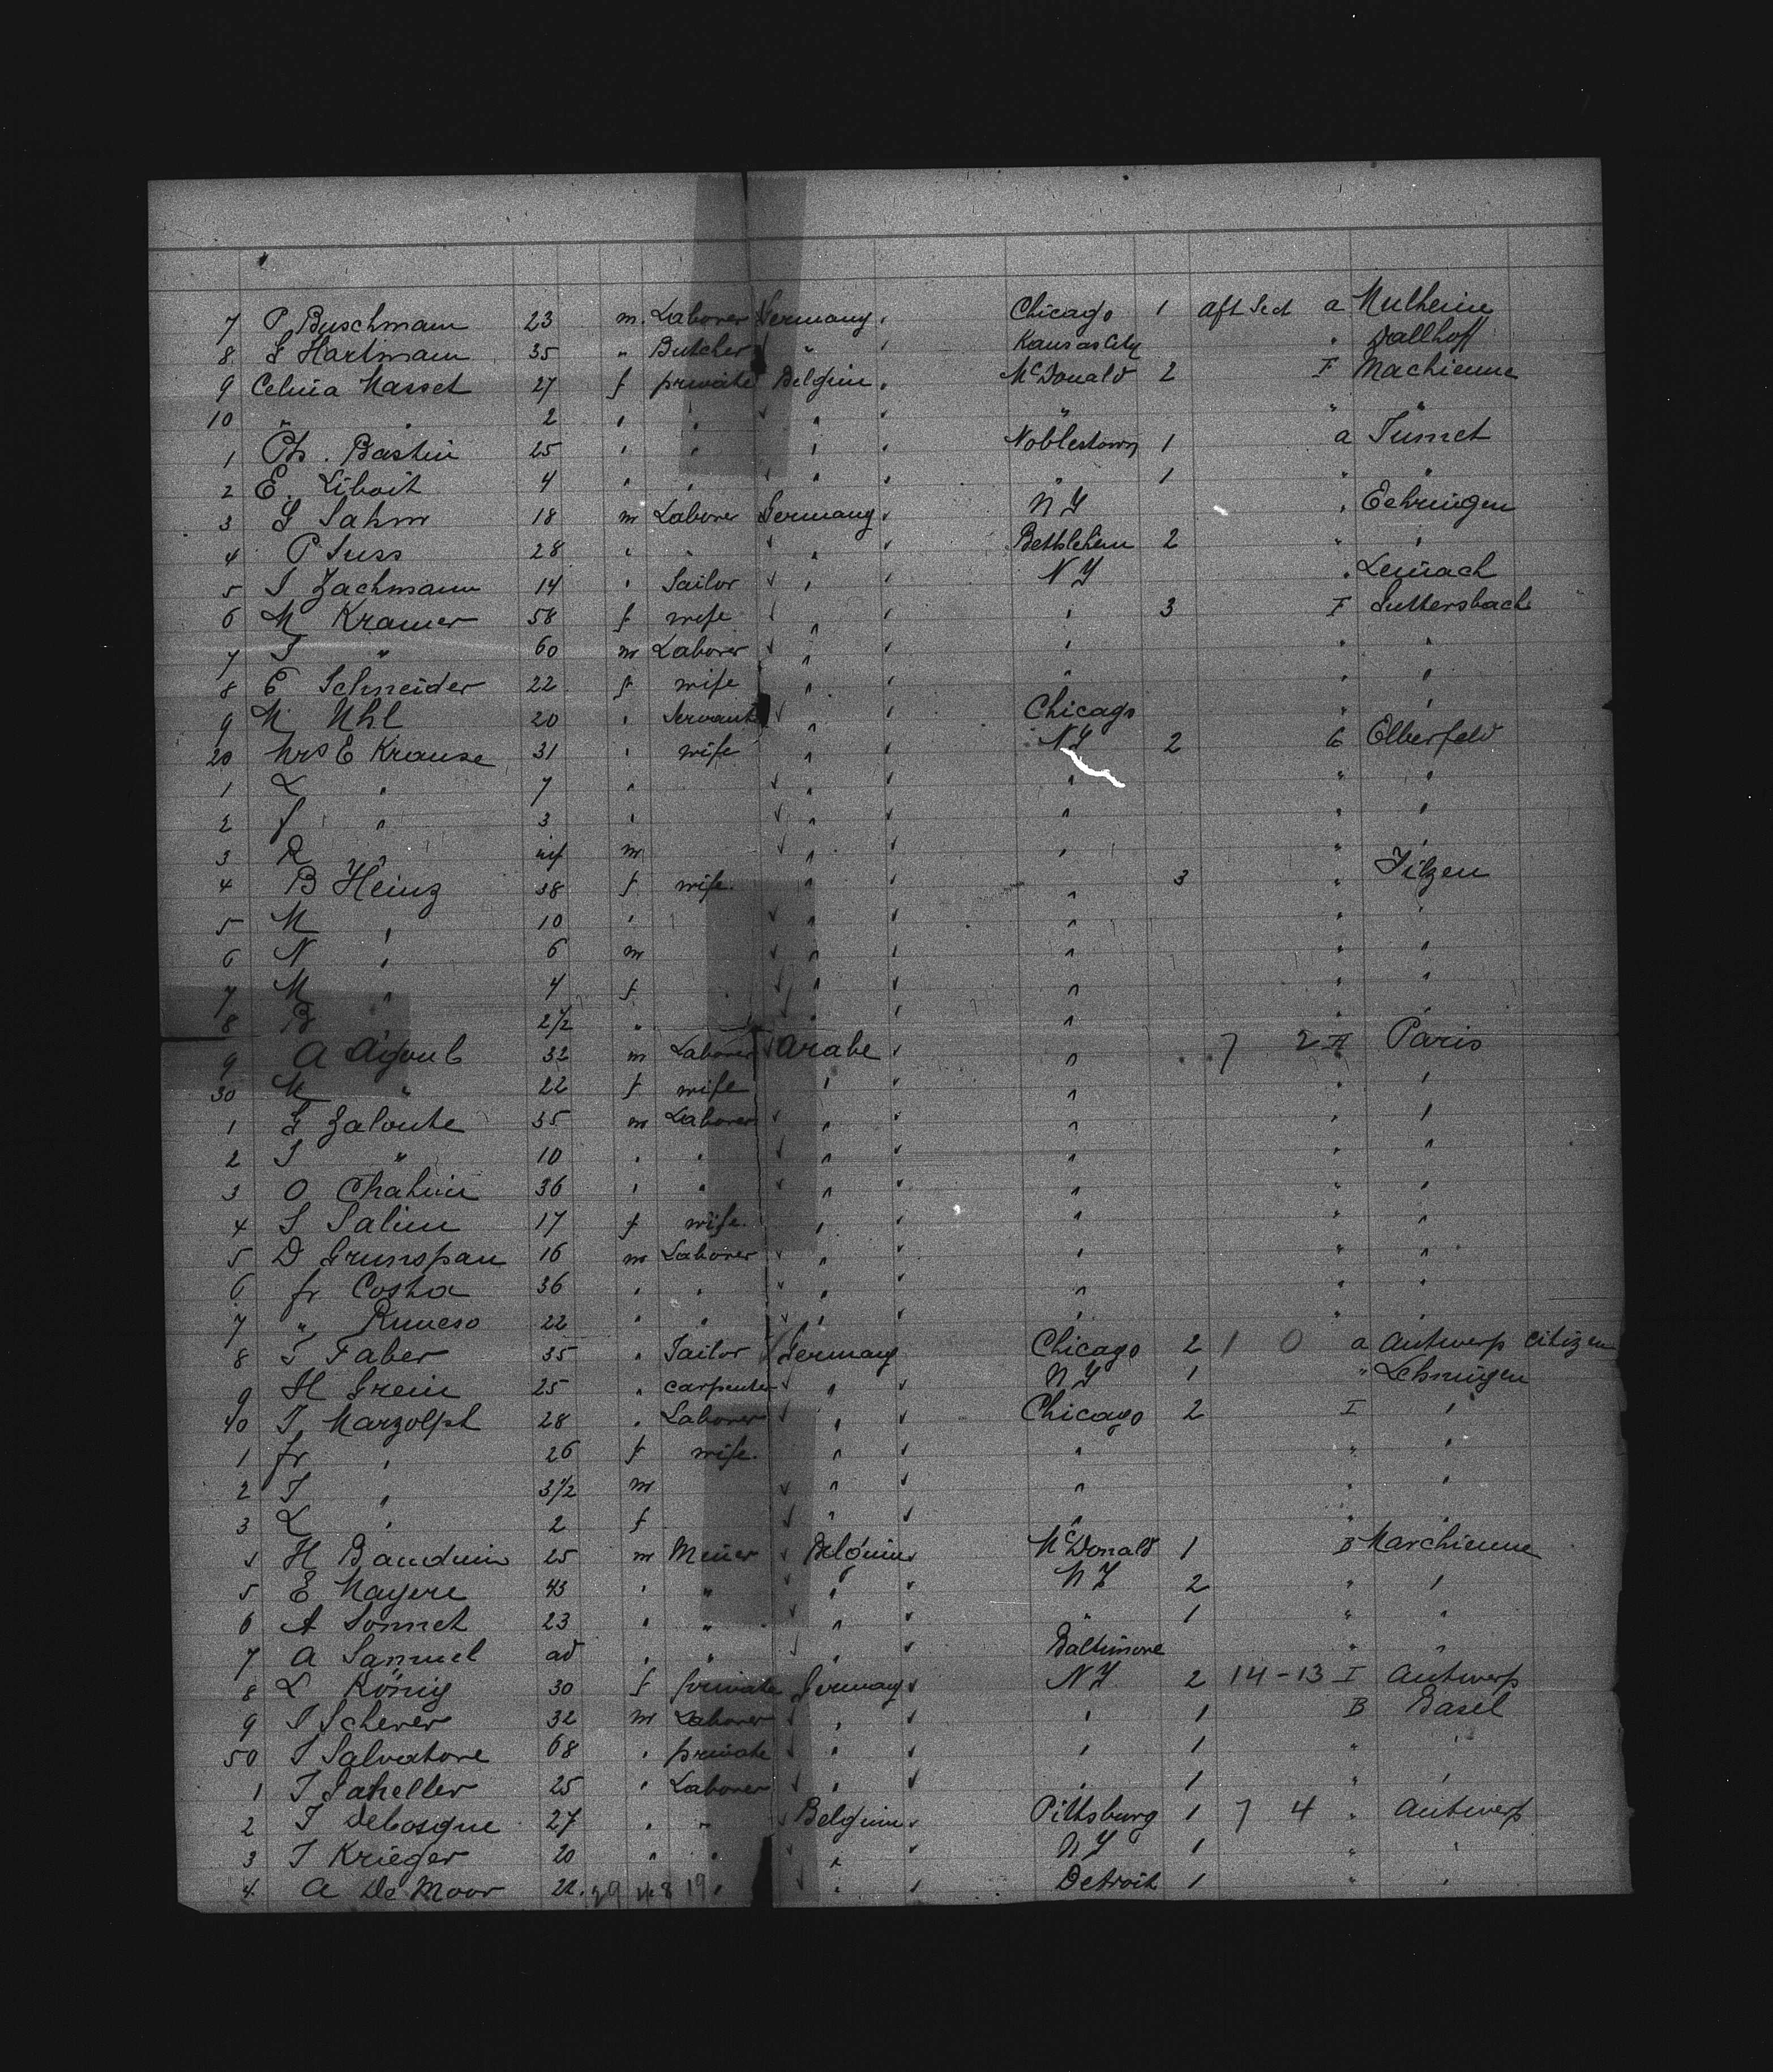 7 P Buschmann 23 m. Laborer Germany " Chicago 1 aft Sect a Mulheine
8 G Hartmann 35 " Butcher " " Kansas City " Dallhoff
9 Celina Masset 27 f private Belgium " McDonald 2 F Machienne
10 " " 2 " " " " " "
1 Ph. Bastin 25 " " " " Noblestown 1 a Jumet
2 E. Liboit 4 " " " " " 1 " "
3 G Sahm 18 m Laborer Germany " N Y " Eehringen
4 P Suss 28 " " " " Bethlehem 2 " "
5 J Zachmann 14 " Sailor " " N Y " Leinach
6 M Kramer 58 f wife " " " 3 F Suttersbach
7 J " 60 m Laborer " " " " "
8 E Schneider 22 f wife " " " " "
9 M Uhl 20 " Servant " " Chicago " "
20 Mrs E Krause 31 " wife " " N Y 2 G Elberfeld
1 L " 7 " " " " " "
2 f " 3 " " " " " "
3 R " inf m " " " " "
4 B Heinz 38 f wife. " " " 3 " Filzen
5 M " 10 " " " " " "
6 N " 6 m " " " " "
7 M " 4 f " " " " "
8 B " 2 1/2 " " " " " "
9 A Agoub 32 m Laborer Arabe " " 7 2 Paris
30 M " 22 f wife " " " " "
1 G Zaloute 35 m Laborer " " " " "
2 J " 10 " " " " " " "
3 O Chahin 36 " " " " " " "
4 S Salim 17 f wife. " " " " "
5 D Grunspan 16 m Laborer " " " " "
6 fr Costa 36 " " " " " " "
7 " Runeso 22 " " " " " " "
8 J Faber 35 " Tailor Germany Chicago 2 1 0 a Antwerp Citizen
9 H Grein 25 " carpenter " " N Y 1 " Lehningen
40 J Marzolph 28 " Laborer " " Chicago 2 I "
1 fr " 26 f wife. " " " " "
2 J " 3 1/2 m " " " " "
3 L " 2 f " " " " "
4 H Bauduin 25 m Meiner Belgium " McDonald 1 B Marchienne
5 E Mayere 43 " " " " N Y 2 " "
6 A Sonnet 23 " " " " " 1 " "
7 A Samuel ad " " " " Baltimore " "
8 L König 30 f private Germany " N Y 2 14-13 I Antwerp
9 J Scherer 32 m Laborer " " " 1 B Basel
50 J Salvatore 68 " private " " " 1 " "
1 J Saheller 25 " Laborer " " " 1 " "
2 J Debosque 27 " " Belgium " Pittsburg 1 7 4 " Antwerp
3 J Krieger 20 " " " " N Y 1 " "
4 A De Moor 22. 29 19 " " " Detroit 1 " "